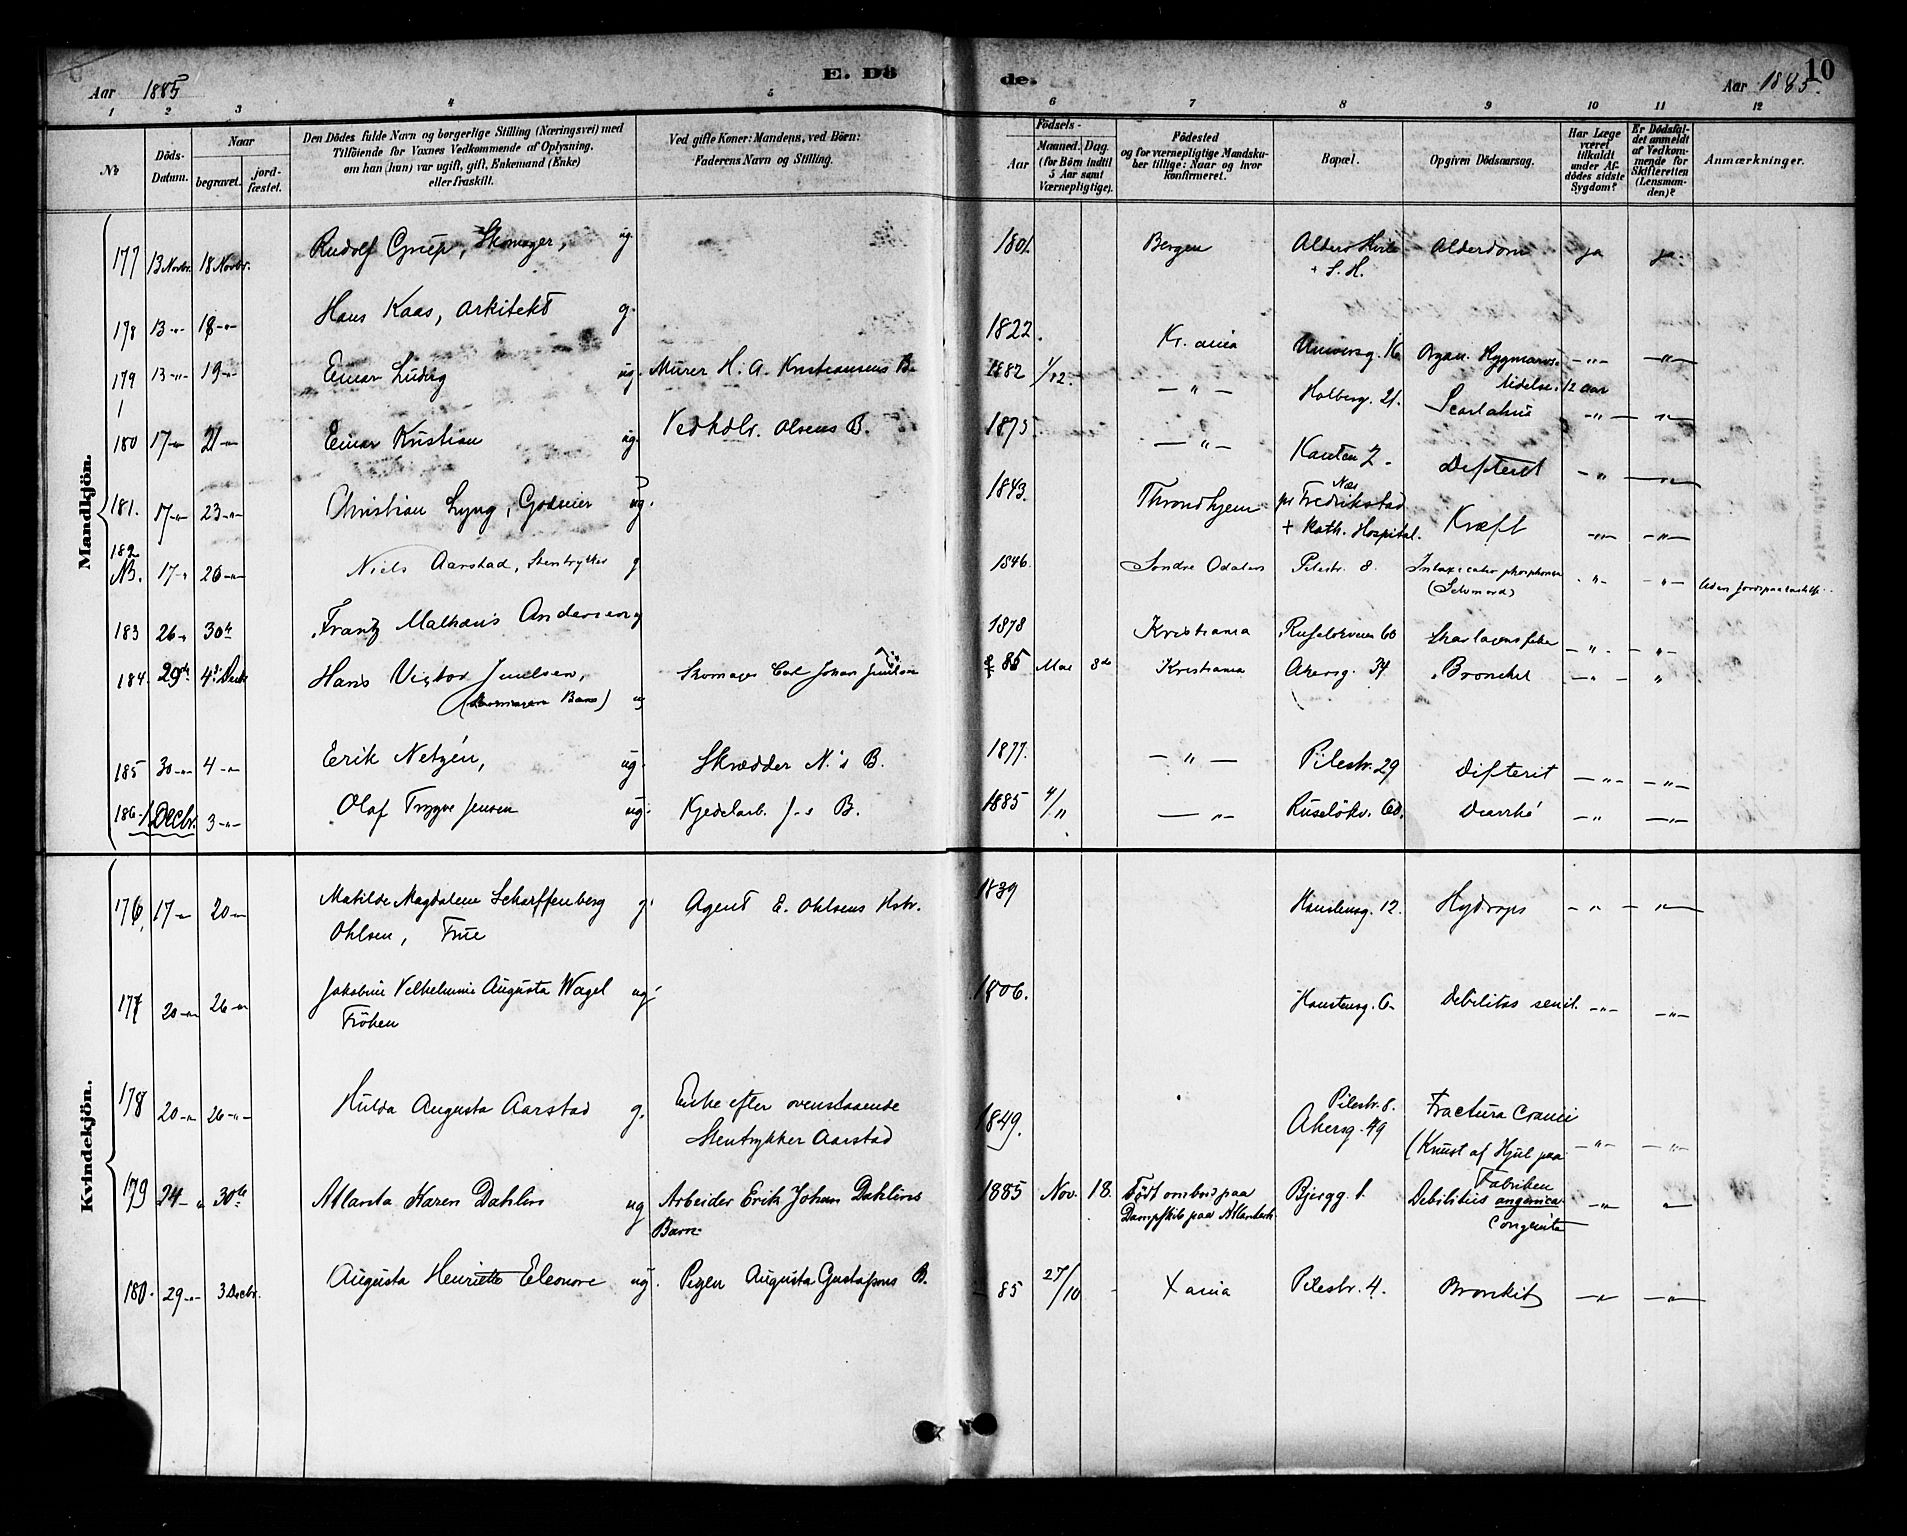 Aar 1885
E. Dö
de.
Aar 1885.
10
1 2 3 4 5 6 7 8 9 10 11 12
No
Döds-Datum.
Naar
begravet.
jord-fæstet.
Den Dödes fulde Navn og borgerlige Stilling (Næringsvei) med
Tilföiende for Voxnes Vedkommende af Oplysning,
om han (hun) var ugift, gift, Enkemand (Enke)
eller fraskilt.
Ved gifte Koner: Mandens, ved Börn:
Faderens Navn og Stilling.
Födsels-
Aar
Maaned. Dag.
(for Börn indtil
5 Aar samt
Værnepligtige).
Födested
og for værnepligtige Mandskaber tillige: Naar og hvor
konfirmeret.
Bopæl.
Opgiven Dödsaarsag.
Har Læge
været
tilkaldt
under Afdödes sidste
Sygdom?
Er Dödsfaldet anmeldt
af Vedkommende for
Skifteretten
(Lensmanden)?
Anmærkninger.
Mandkjön.
177 13 Novbr. 18 Novbr. Rudolf Skomager, ug. 1801. Bergen Alders Hvile Alderdom ja ja.
+ S. H.
178 13 -"- 18 -"- Hans Kaas, Arkitekt g. 1822. Kr. ania Universg. 16 Organ. -"- -"-
lidelse. 12 aar
179 13 -"- 19 -"- Einar Ludvig ug. Murer H. A. Kristiansens B. 1882 1/12. -"- Holberg. 21. -"- -"-
180 17 -"- 21 -"- Einar Kristian ug. Vedhdlr. Olsens B. 1875 -"- Difterit -"- -"-
181. 17 -"- 23 -"- Christian Lyng, Godseier ug. 1843. Throndhjem Næs
pr Fredrikstad Kræft -"- -"-
+ Kath. Hospital.
182
NB. 17 -"- 26 -"- Niels Aarstad, Stentrykker g 1846. Söndre Odalen Pilestr. 8. -"- -"- Uden
(Selvmord)
183 26 -"- 30te Frantz Mathæus Andersen ug 1878 Kristiania Ruselökveien 60 Skarlagensfeber -"- -"-
184 29de 4de Decbr Hans Victor Juulsen, Skomager Carl Johan Juulsen 85 Mai 8de Kristiania Akersg. 34 Bronchit -"- "
(Skomagers Barn) ug
185 30 -"- 4 -"- Erik Netzén, ug. Skrædder N.'s B. 1877. -"- Pilestr. 29 Difterit -"- -"-
186 1 Decbr. 3 -"- Olaf Trygve Jensen ug. Kjedelarb. J.s B. 1885 4/11 -"- Ruselökv. 60. Diarrhé -"- -"-
Kvindekjön.
176. 17 -"- 20 -"- Matilde Magdalene Scharffenberg g. Agent E. Ohlsens Hstr. 1839 12. Hydrops -"- -"-
Ohlsen, Frue
177 20 -"- 26 -"- Jakobine Vilhelmine Augusta Wagel ug. 1806. 6 Debilitas senil. -"- -"-
Fröken
178 20 -"- 26 -"- Hulda Augusta Aarstad g. Enke efter ovenstaaende 1849. Pilestr. 8. Fractura Cranii
Stentrykker Aarstad Akersg. 49 (Knust af Hjul paa -"- -"-
Fabriken
179 24 -"- 30te Atlanta Karen Dahlin ug Arbeider Erik Johan Dahlins 1885 Nov. 18. Född ombord paa Bjergg. 1. Debilitas -"- "
Barn. Dampskib paa Atlanterh. Congenita
180. 29 -"- 3 Decbr. Augusta Henriette Eleonore ug. Pigen Augusta Gustafsons B. 85 27/10 Xania Pilestr. 4. Bronkit -"- -"-